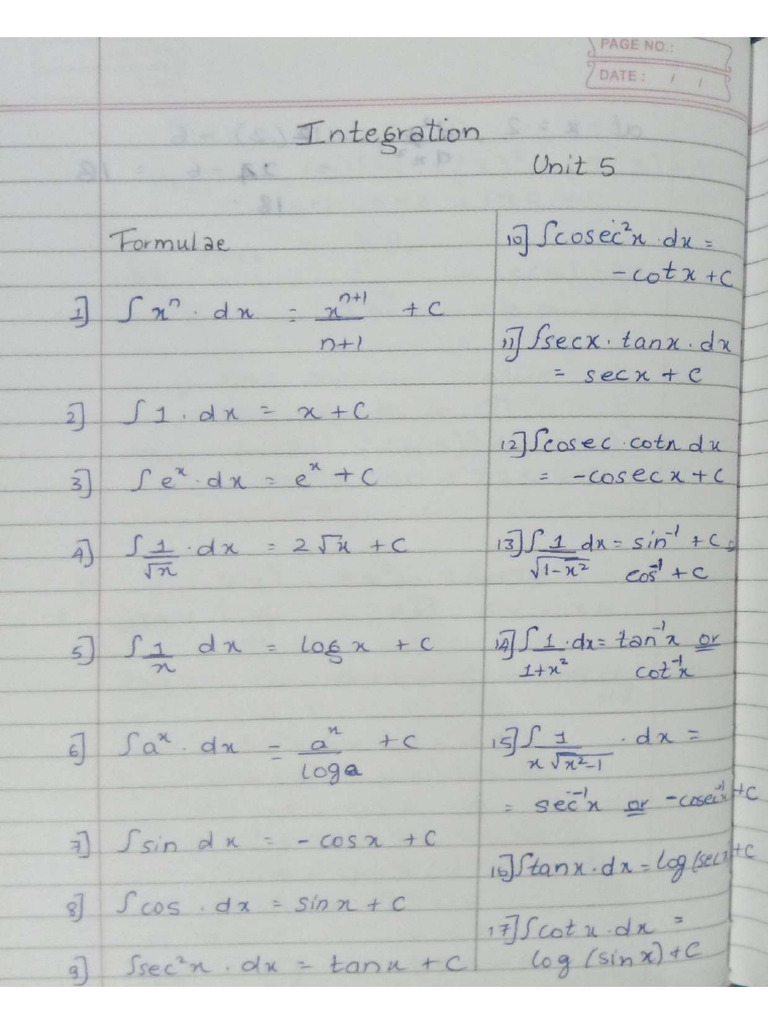 PAGE NO.:
DATE: / /
Integration
Unit 5
Formulae
1] ∫xⁿ · dx = xⁿ⁺¹ + C
n+1
2] ∫1 · dx = x + C
3] ∫eˣ · dx = eˣ + C
4] ∫1 · dx = 2√x + C
√x
5] ∫1 dx = log x + C
x
6] ∫aˣ · dx = aˣ + C
log a
7] ∫sin dx = -cosx + C
8] ∫cos · dx = sinx + C
9] ∫sec²x · dx = tanx + C
10] ∫cosec²x · dx =
-cotx + C
11] ∫secx · tanx · dx
= secx + C
12] ∫cosec · cotx dx
= -cosecx + C
13] ∫1 dx = sin⁻¹ + C
√1-x² cos⁻¹ + C
14] ∫1 · dx = tan⁻¹x or
1+x² cot⁻¹x
15] ∫1 · dx =
x√x²-1
= sec⁻¹x or -cosec⁻¹x + C
16] ∫tanx · dx = log(secx + C
17] ∫cotx · dx =
log (sinx) + C